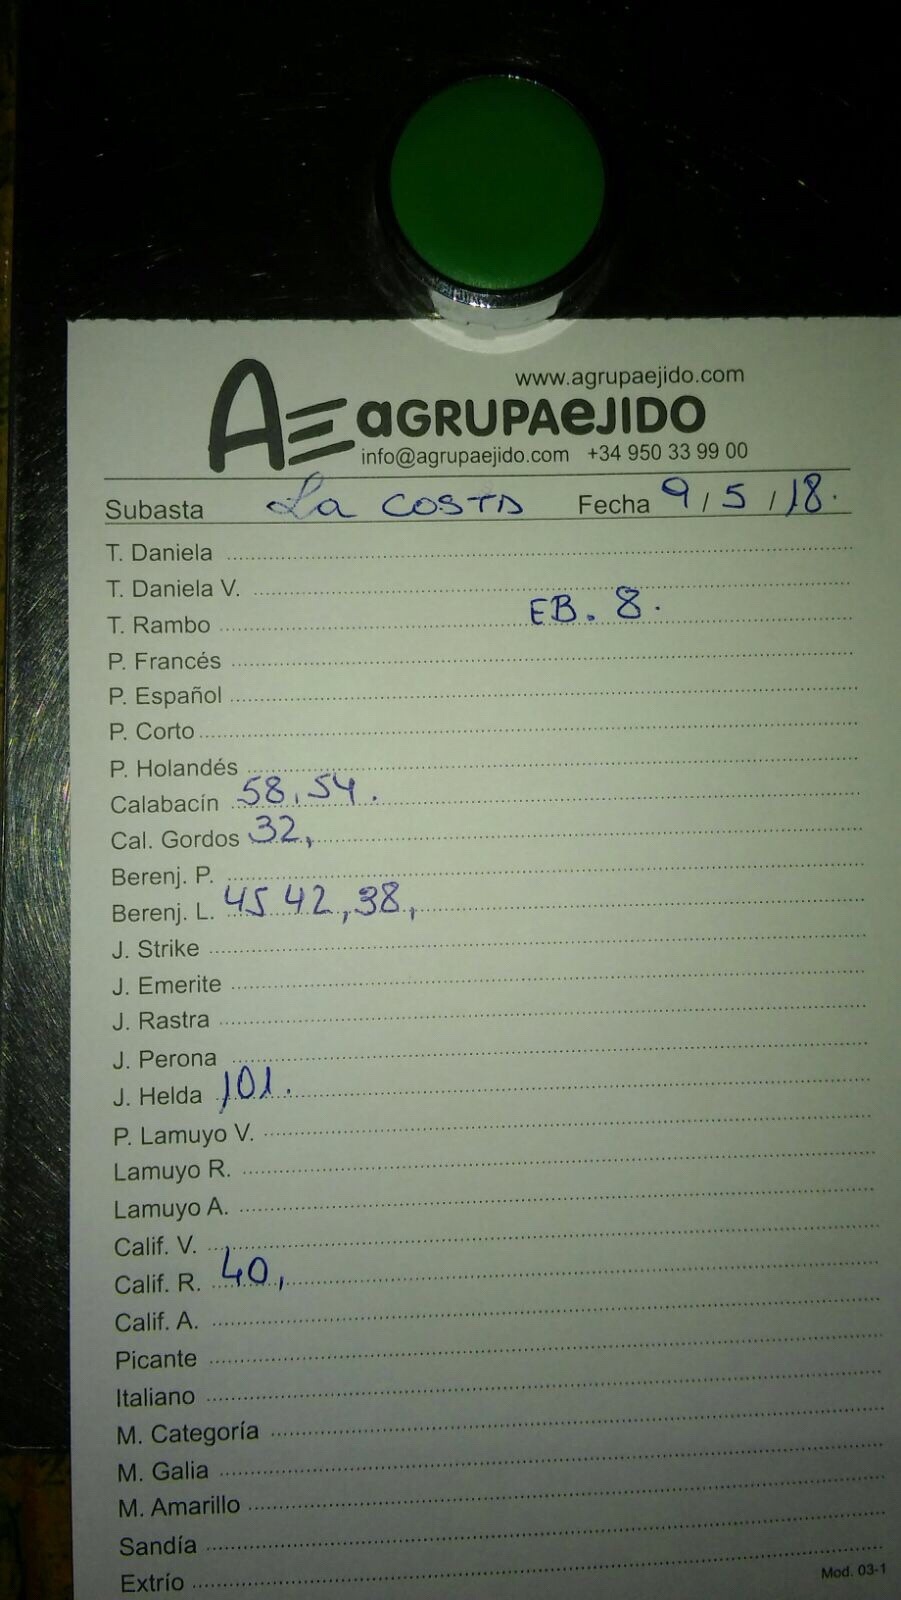 www.agrupaejido.com
AE aGRUPAeJIDO
info@agrupaejido.com +34 950 33 99 00
Subasta La COSTA Fecha 9/5/18.
T. Daniela
T. Daniela V.
EB. 8.
T. Rambo
P. Francés
P. Español
P. Corto
P. Holandés
Calabacín 58, 54.
Cal. Gordos 32,
Berenj. P.
Berenj. L. 45 42, 38,
J. Strike
J. Emerite
J. Rastra
J. Perona
J. Helda 101.
P. Lamuyo V.
Lamuyo R.
Lamuyo A.
Calif. V.
Calif. R. 40,
Calif. A.
Picante
Italiano
M. Categoría
M. Galia
M. Amarillo
Sandía
Extrío
Mod. 03-1